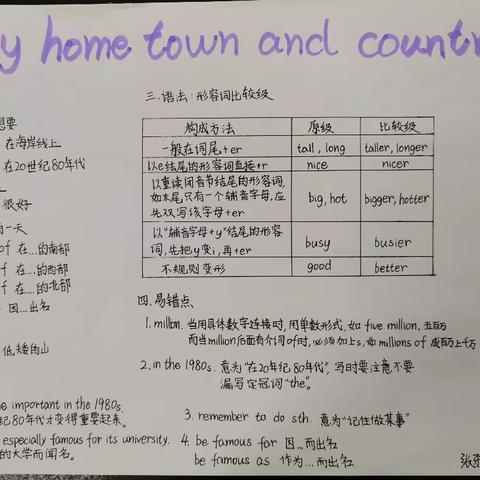 y home town and countr
想要
在海岸线上
在20世纪80年代
很好
的一天
of 在...的南部
of 在...的西部
of 在...的北部
因...出名
低矮的山
me important in the 1980s.
纪80年代才变得重要起来。
especially famous for its university.
的大学而闻名。
三.语法:形容词比较级
构成方法 原级 比较级
一般在词尾+er tall, long taller, longer
以e结尾的形容词直接+r nice nicer
以重读闭音节结尾的形容词,
如末尾只有一个辅音字母,应
先双写该字母+er big, hot bigger, hotter
以“辅音字母+y”结尾的形容
词,先把y变i,再+er busy busier
不规则变形 good better
四.易错点
1. million. 当用具体数字连接时,用单数形式,如 five million, 五百万
而当million后面有介词of时,必须加上s,如 millions of 成百万上千万
2. in the 1980s. 意为“在20年纪80年代”,写时要注意不要
漏写定冠词“the”。
3. remember to do sth. 意为“记住做某事”
4. be famous for 因...而出名
be famous as 作为...而出名